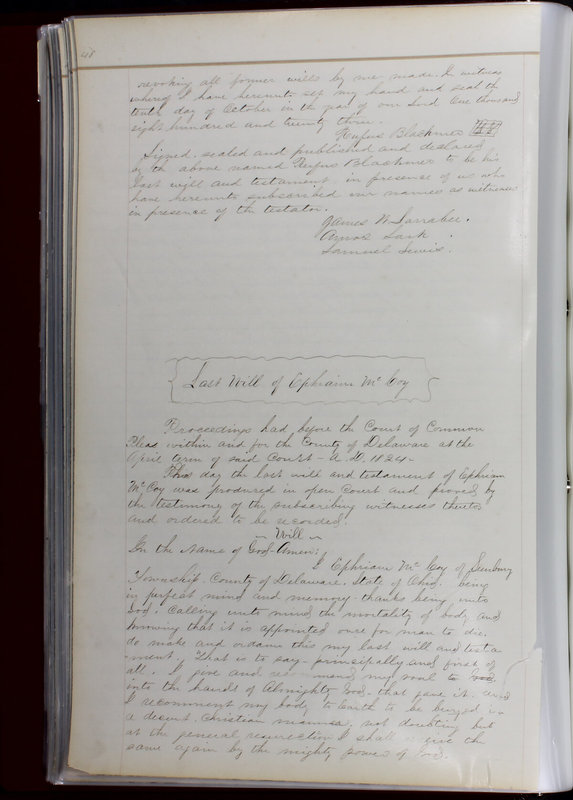 revoking all former wills by me made. In witness
whereof I have hereunto set my hand and seal th
tenth day of October in the year of our Lord One thousand
eight hundred and twenty three.
Rufus Blackmer
Signed, sealed and published and declared
by the above named Rufus Blackmer to be his
last will and testament, in presence of us who
have hereunto subscribed our names as witnesses
in presence of the testator.
James W. Larrabee.
Lark.
Samuel Lewis.
Last Will of Ephriam Mc Coy
Proceedings had before the Court of Common
Pleas within and for the County of Delaware at the
April term of said Court - A.D. 1824-
This day the last will and testament of Ephriam
Mc Coy was produced in open Court and proved by
the testimony of the subscribing witnesses thereto
and ordered to be recorded.
~ Will ~
In the Name of God Amen:
I Ephriam Mc Coy of Sunbury
Township. County of Delaware. State of Ohio. being
in perfect mind and memory - thanks being unto
God. Calling unto mind the mortality of body and
knowing that it is appointed once for man to die.
do make and ordain this my last will and testa
-ment. That is to say - principally and first of
all. I give and recommend my soul to
into the hands of Almighty God - that gave it. and
I recomment my body to Earth to be buryed in
a desent Christian manner, not doubting but
at the general resurrection I shall the
same again by the mighty power of God.